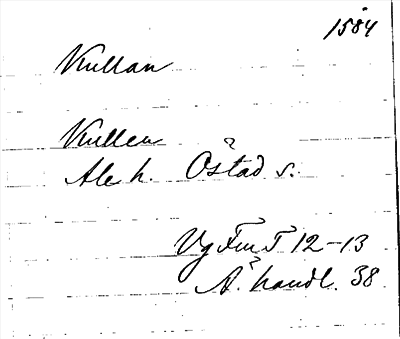 1584
Kullan
Kullen
Ale h. Östad s.
Vg Fm T 12-13
A. handl. 38